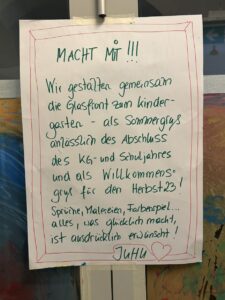 MACHT MIT !!!
Wir gestalten gemeinsam
die Glasfront zum Kinder-
garten - als Sommergruß
anlässlich des Abschluss
des KG- und Schuljahres
und als Willkommens-
gruß für den Herbst 23!
Sprüche, Malereien, Farbenspiel...
alles, was glücklich macht,
ist ausdrücklich erwünscht!
JUHU